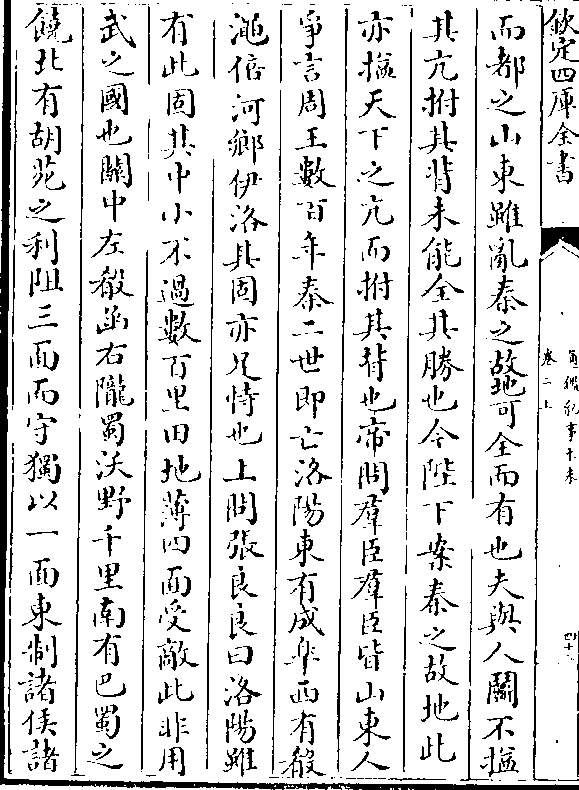 欽定四庫全書
通鑑紀事本末
卷二上
而都之山東雖亂秦之故地可全而有也夫與人鬭不搤
其亢拊其背未能全其勝也今陛下案秦之故地此
亦搤天下之亢而拊其背也帝問羣臣羣臣皆山東人
爭言周王數百年秦二世即亡洛陽東有成臯西有殽
澠倍河鄉伊洛其固亦足恃也上問張良良曰洛陽雖
有此固其中小不過數百里田地薄四面受敵此非用
武之國也關中左殽函右隴蜀沃野千里南有巴蜀之
饒北有胡苑之利阻三面而守獨以一面東制諸侯諸